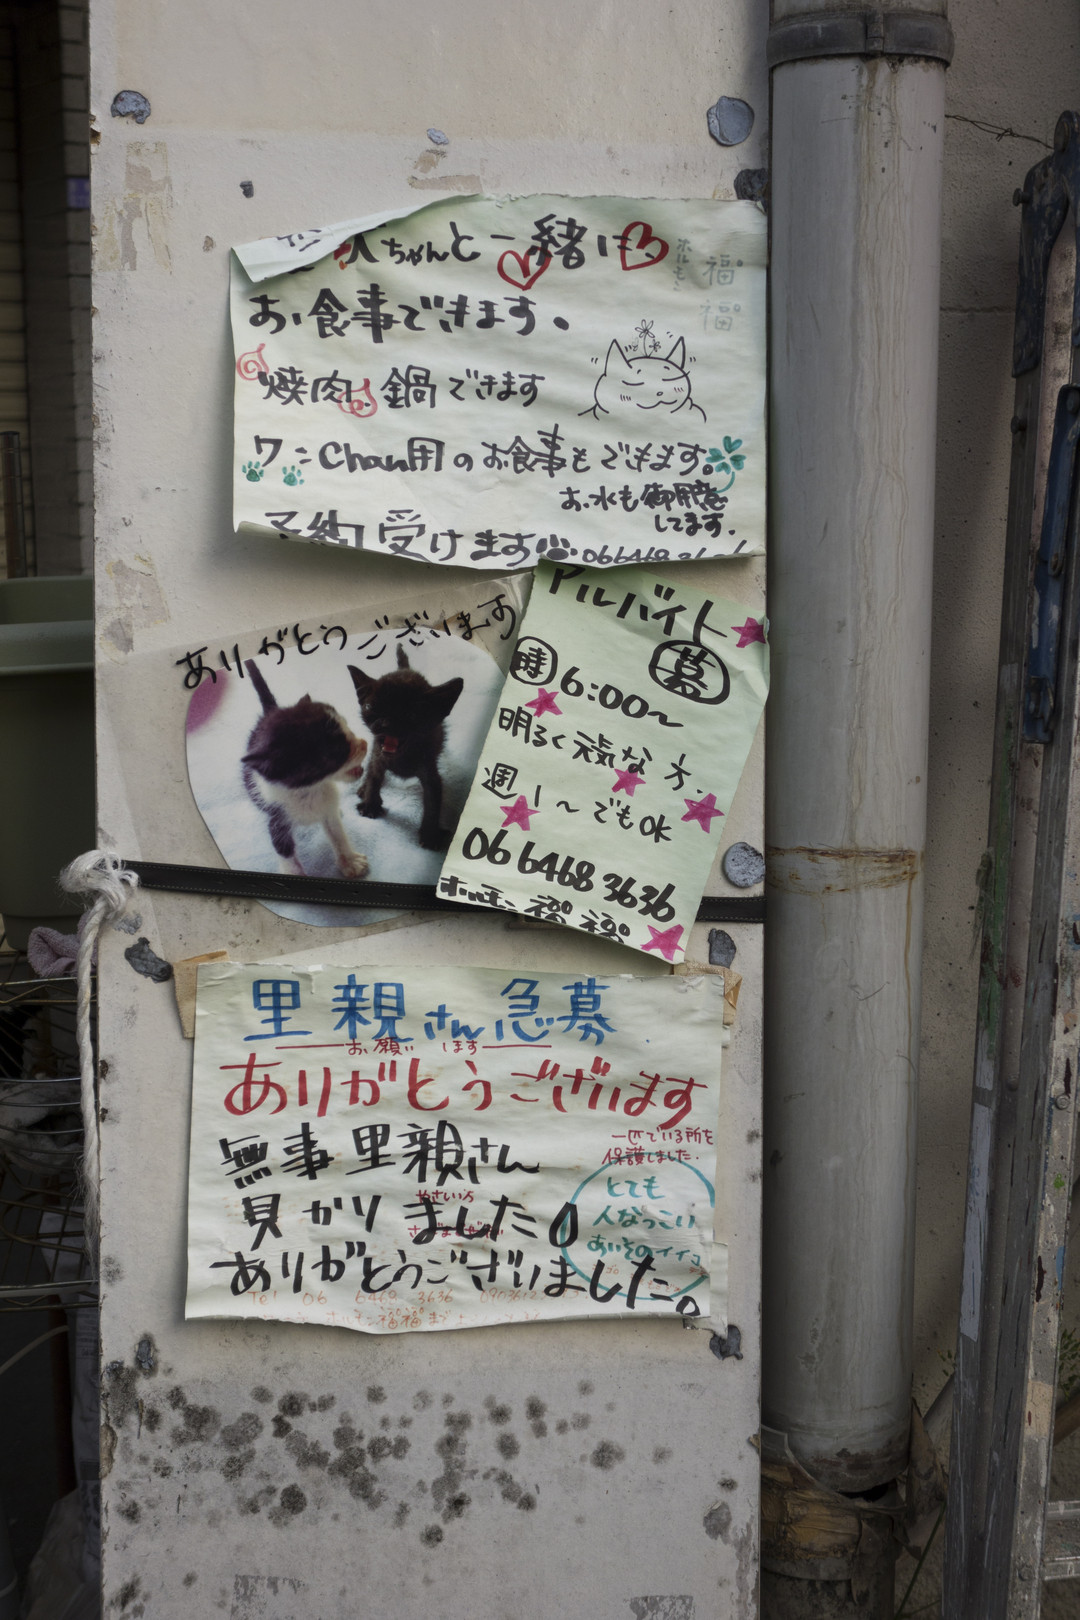 犬ちゃんと一緒にも
ホルモン
福福
お食事できます。
焼肉、鍋できます
ワンChan用のお食事もできます。
お水も御用意
してます。
予約受けます
ありがとうございます
アルバイト
募
時6:00〜
明るく元気な方
週1〜でもOK
06 6468 3636
ホルモン福福
里親さん急募
お願いします
ありがとうございます
一匹でいる所を
保護しました。
無事里親さん
見かりました。
とても
人なつっこい
あいそのイイコ
ありがとうございました。
Tel 06 6468 3636
ホルモン福福まで